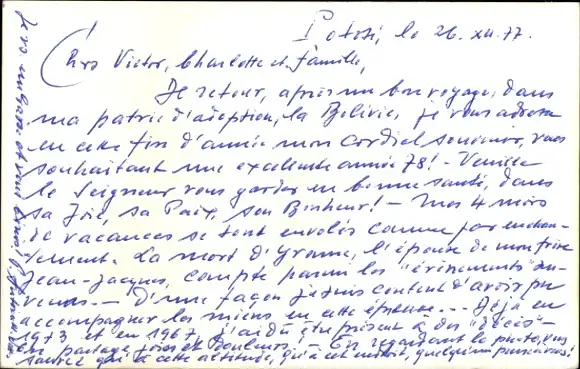 Potosi, le 26. XII. 77.
Chrs Victor, Charlotte et famille,
De retour, après un bon voyage, dans
ma patrie d'adoption, la Bolivie, je vous adresse
en cette fin d'année mon cordial souvenir, vous
souhaitant une excellente année 78! - Veuille
le Seigneur vous garder en bonne santé, dans
sa Joie, sa Paix, son Bonheur! - Mes 4 mois
de vacances se sont envolés comme par enchan-
tement. La mort d'Yvonne, l'épouse de mon frère
Jean-Jacques, compte parmi les "événements"
D'une façon je suis content d'avoir pu
accompagner les miens en cette épreuve... Déjà en
1973 et en 1967, j'ai dû être présent à des "décès" -
On partage joies et douleurs! - En regardant la photo, vous
saurez qu'à cette altitude, qu'à cet endroit, quelqu'un pense à vous!
Je vs embrasse et vous